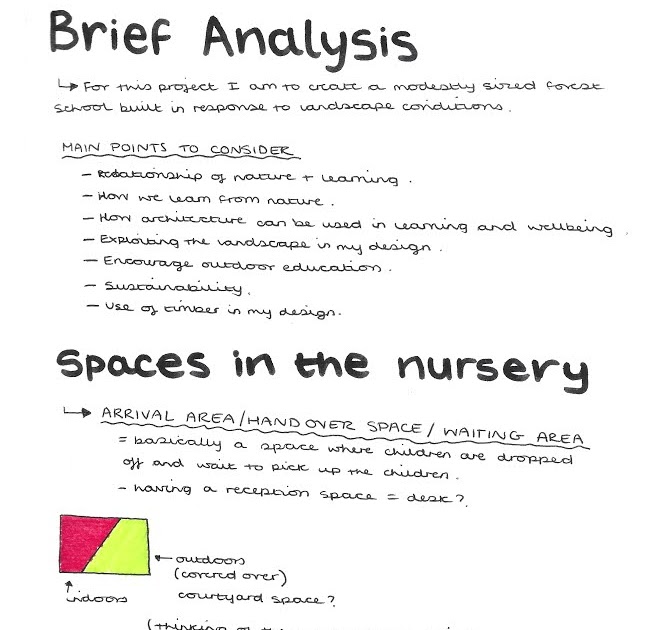 Brief Analysis
↳ For this project I am to create a modestly sized forest
school built in response to landscape conditions.
MAIN POINTS TO CONSIDER
- Relationship of nature + learning.
- How we learn from nature.
- How architecture can be used in learning and wellbeing.
- Exploiting the landscape in my design.
- Encourage outdoor education.
- Sustainability.
- Use of timber in my design.
Spaces in the nursery
↳ ARRIVAL AREA/HANDOVER SPACE/WAITING AREA
= basically a space where children are dropped
off and wait to pick up the children.
- having a reception space = desk?
← outdoors
(covered over)
courtyard space?
↑
indoors
(thinking